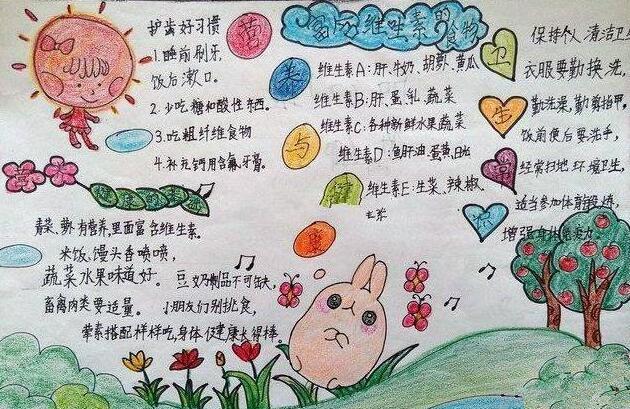 护齿好习惯
1.睡前刷牙,
饭后漱口。
2.少吃糖和酸性东西。
3.吃粗纤维食物
4.补充钙用含氟牙膏。
营
养
与
健
康
富含维生素的食物
维生素A:肝、牛奶、胡萝、黄瓜
维生素B:肝、蛋、乳、蔬菜
维生素C:各种新鲜水果蔬菜
维生素D:鱼肝油、蛋黄、日光
维生素E:生菜、辣椒、
卫
生
保持个人清洁卫生
衣服要勤换洗,
勤洗澡,勤剪指甲。
饭前便后要洗手,
经常扫地环境卫生,
适当参加体育锻炼,
增强身体免疫力
营
健康
青菜、萝有营养,里面富含维生素。
米饭、馒头香喷喷,
蔬菜水果味道好。豆奶制品不可缺,
畜禽肉类要适量。小朋友们别挑食,
荤素搭配样样吃,身体健康长得棒。